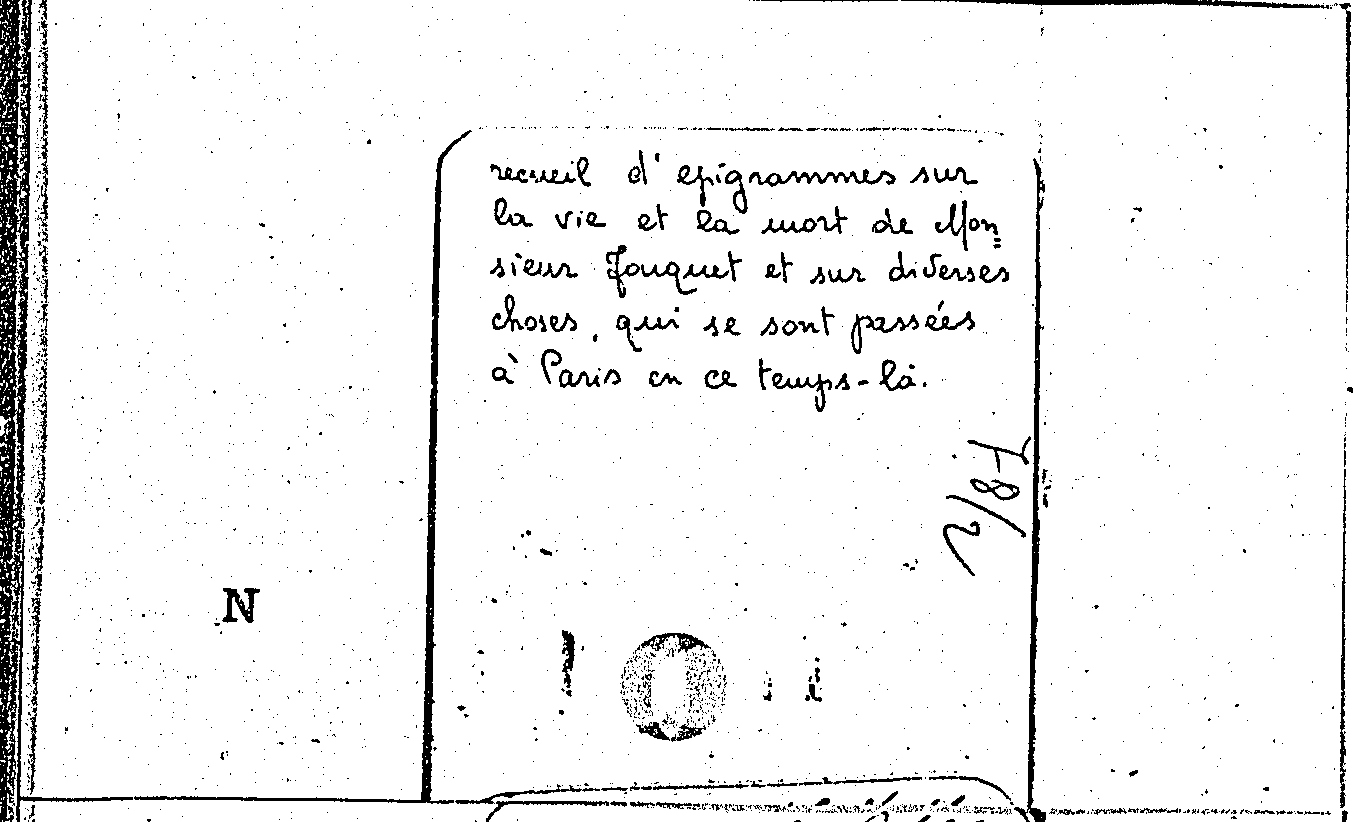 recueil d'epigrammes sur
la vie et la mort de Mon=
sieur Fouquet et sur diverses
choses, qui se sont passées
à Paris en ce temps-là.
N